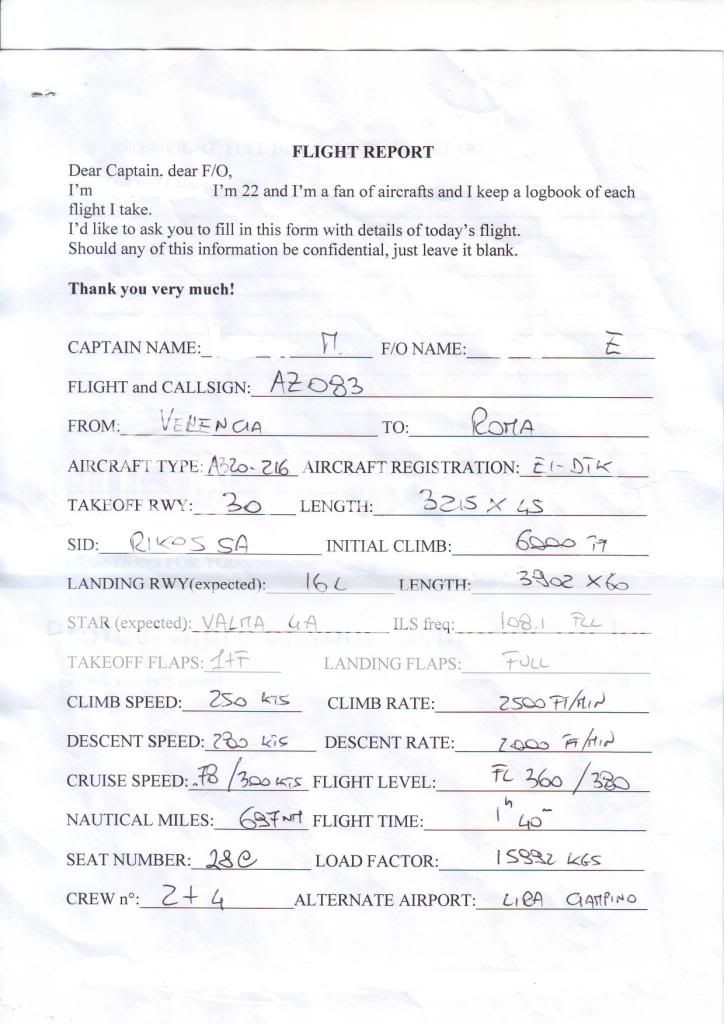 FLIGHT REPORT
Dear Captain. dear F/O,
I'm I'm 22 and I'm a fan of aircrafts and I keep a logbook of each
flight I take.
I'd like to ask you to fill in this form with details of today's flight.
Should any of this information be confidential, just leave it blank.
Thank you very much!
CAPTAIN NAME: M. F/O NAME: E
FLIGHT and CALLSIGN: AZ083
FROM: VELENCIA TO: ROMA
AIRCRAFT TYPE: A320-216 AIRCRAFT REGISTRATION: EI-DTK
TAKEOFF RWY: 30 LENGTH: 3215 X 45
SID: RIKOS 5A INITIAL CLIMB: 6000 FT
LANDING RWY(expected): 16L LENGTH: 3902 X 60
STAR (expected): VALMA 4A ILS freq: 108.1 FLL
TAKEOFF FLAPS: 1+F LANDING FLAPS: FULL
CLIMB SPEED: 250 KTS CLIMB RATE: 2500 FT/MIN
DESCENT SPEED: 280 KTS DESCENT RATE: 2000 FT/MIN
CRUISE SPEED: .78/300 KTS FLIGHT LEVEL: FL 360/380
NAUTICAL MILES: 697 NM FLIGHT TIME: 1h 40
SEAT NUMBER: 28C LOAD FACTOR: 15992 KGS
CREW n°: 2+4 ALTERNATE AIRPORT: LIRA CIAMPINO